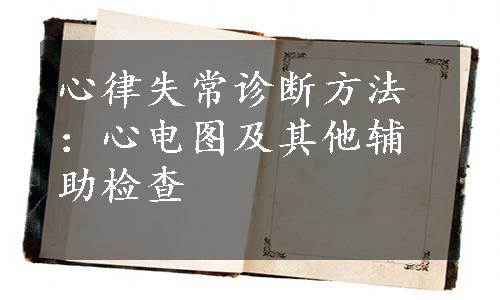 心律失常诊断方法
：心电图及其他辅
助检查